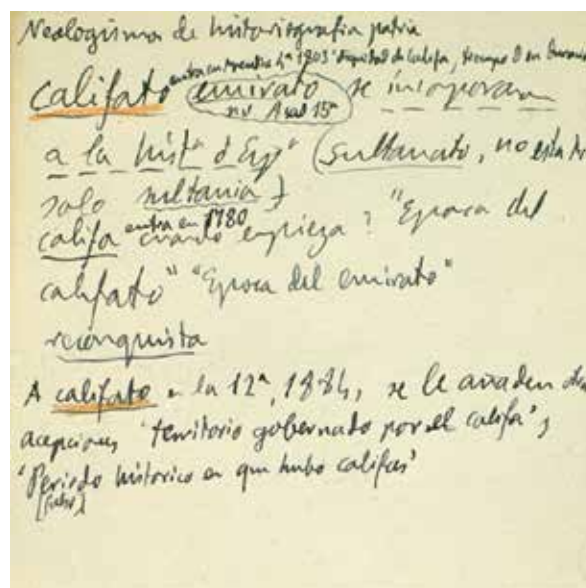 Neologismo de historiografía patria
entra en Acad en 4ª 1803 "dignidad de califa, tiempo q
califato emirato se incorporan
no Acad 15ª
a la histª d Espª (sultanato, no está
solo sultanía)
entra en 1780
califa cuando empieza? "Epoca del
califato" "Epoca del emirato"
reconquista
A califato en la 12ª, 1884, se le añaden dos
acepciones 'territorio gobernado por el califa' y
'Periodo histórico en que hubo califas'